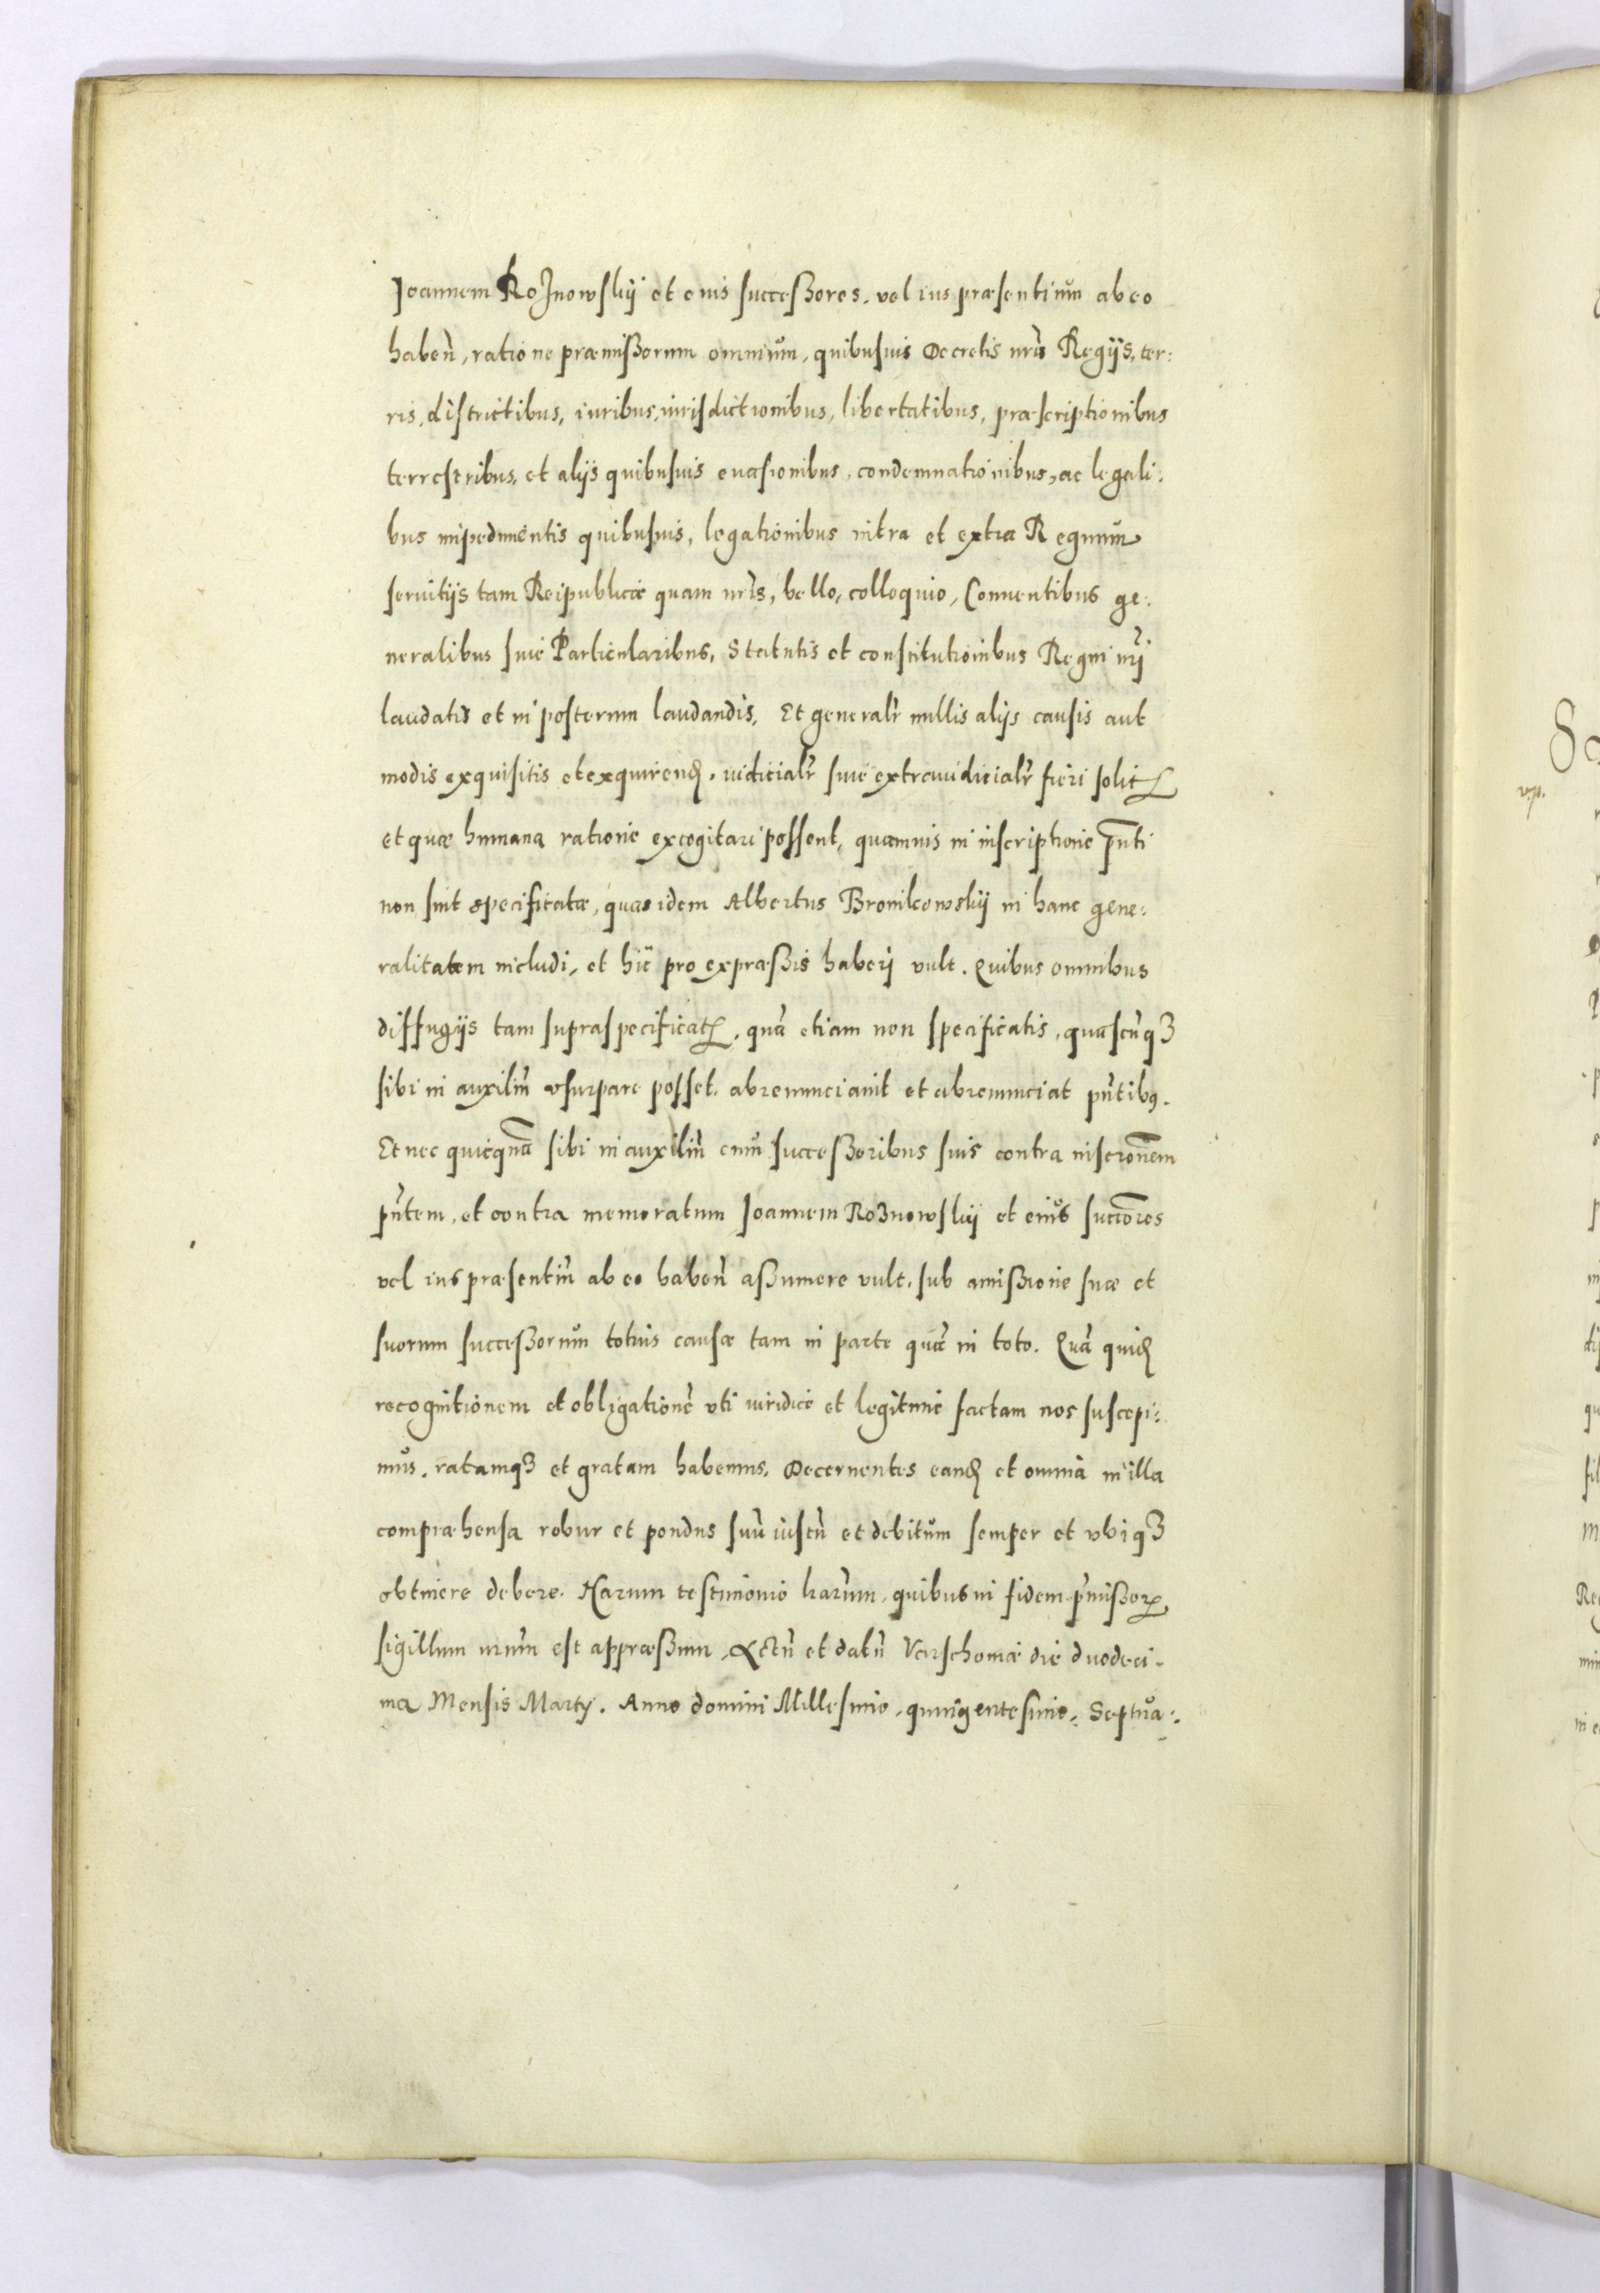 Joannem Roznowskij et eius successores. vel ius præsentium ab eo
haben̄, ratione præmissorum omnium, quibusuis Decretis nr̄is Regijs, ter:
ris, districtibus, iuribus, iurisdictionibus, libertatibus, præscriptionibus
terrestribus, et alijs quibusuis euasionibus, condemnationibus, ac legali:
bus impedimentis quibusuis, legationibus intra et extra Regnum
seruitijs tam Reipublicæ quam nr̄is, bello, colloquio, Conuentibus ge:
neralibus siue Particularibus, Statutis et constitutionibus Regni nr̄i
laudatis et in posterum laudandis, Et generalr̄ nullis alijs causis aut
modis exquisitis et exquirend̄. iudicialr̄ siue extraiudicialr̄ fieri solitꝭ
et quæ humana ratione excogitari possent, quamuis in inscriptione pn̄ti
non sint specificatæ, quas idem Albertus Bronikowskij in hanc gene:
ralitatem includi, et hic pro expræssis haberi vult. Quibus omnibus
diffugijs tam supraspecificatꝭ, quā etiam non specificatis, quascūqꝫ
sibi in auxiliū vsurpare posset. abrenunciauit et abrenunciat pn̄tibꝰ.
Et nec quicquā sibi in auxiliū cum successoribus suis contra inscr̄onem
pn̄tem, et contra memoratum Joannem Roznowskij et eius succ̄ores
vel ius præsentiū ab eo haben̄ assumere vult. sub amissione suæ et
suorum successorum totius causæ tam in parte quā in toto. Quā quid̄
recognitionem et obligationē vti iuridicè et legitimè factam nos suscepi:
mus. ratamqꝫ et gratam habemus, Decernentes eand̄ et omnia in illa
compræhensa robur et pondus suū iustū et debitum semper et vbiqꝫ
obtinere debere. Harum testimonio l̄rarum, quibus in fidem p̄missorꝝ
sigillum nr̄um est appræssum, Actū et datū Varschouiæ die duodeci:
ma Mensis Martij. Anno domini Millesimo, quingentesimo, Septua: